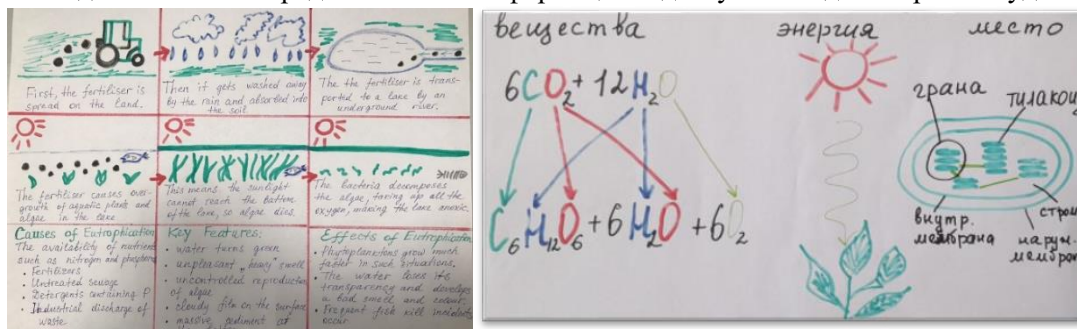 First, the fertiliser is
spread on the land.
Then it gets washed away
by the rain and absorbed into
the soil.
The the fertiliser is trans-
ported to a lake by an
underground river.
The fertiliser causes over-
growth of aquatic plants and
algae in the lake
This means, the sunlight
cannot reach the bottom
of the lake, so algae dies.
The bacteria decomposes
the algae, taking up all the
oxygen, making the lake anoxic.
Causes of Eutrophication
The availability of nutrients
such as nitrogen and phosphorus
• Fertilizers
• Untreated sewage
• Detergents containing P
• Industrial discharge of
waste
Key Features:
• water turns green
• unpleasant "heavy" smell
• uncontrolled reproduction
of algae
• cloudy film on the surface
• massive sediment at
Effects of Eutrophication
• Phytoplanktons grow much
faster in such situations.
• The water loses its
transparency and develops
a bad smell and colour.
• Frequent fish kill incidents
occur
вещества
энергия
место
6CO2 + 12H2O
C6H12O6 + 6H2O + 6O2
грана
тилакоид
внутр.
мембрана
строма
наруж.